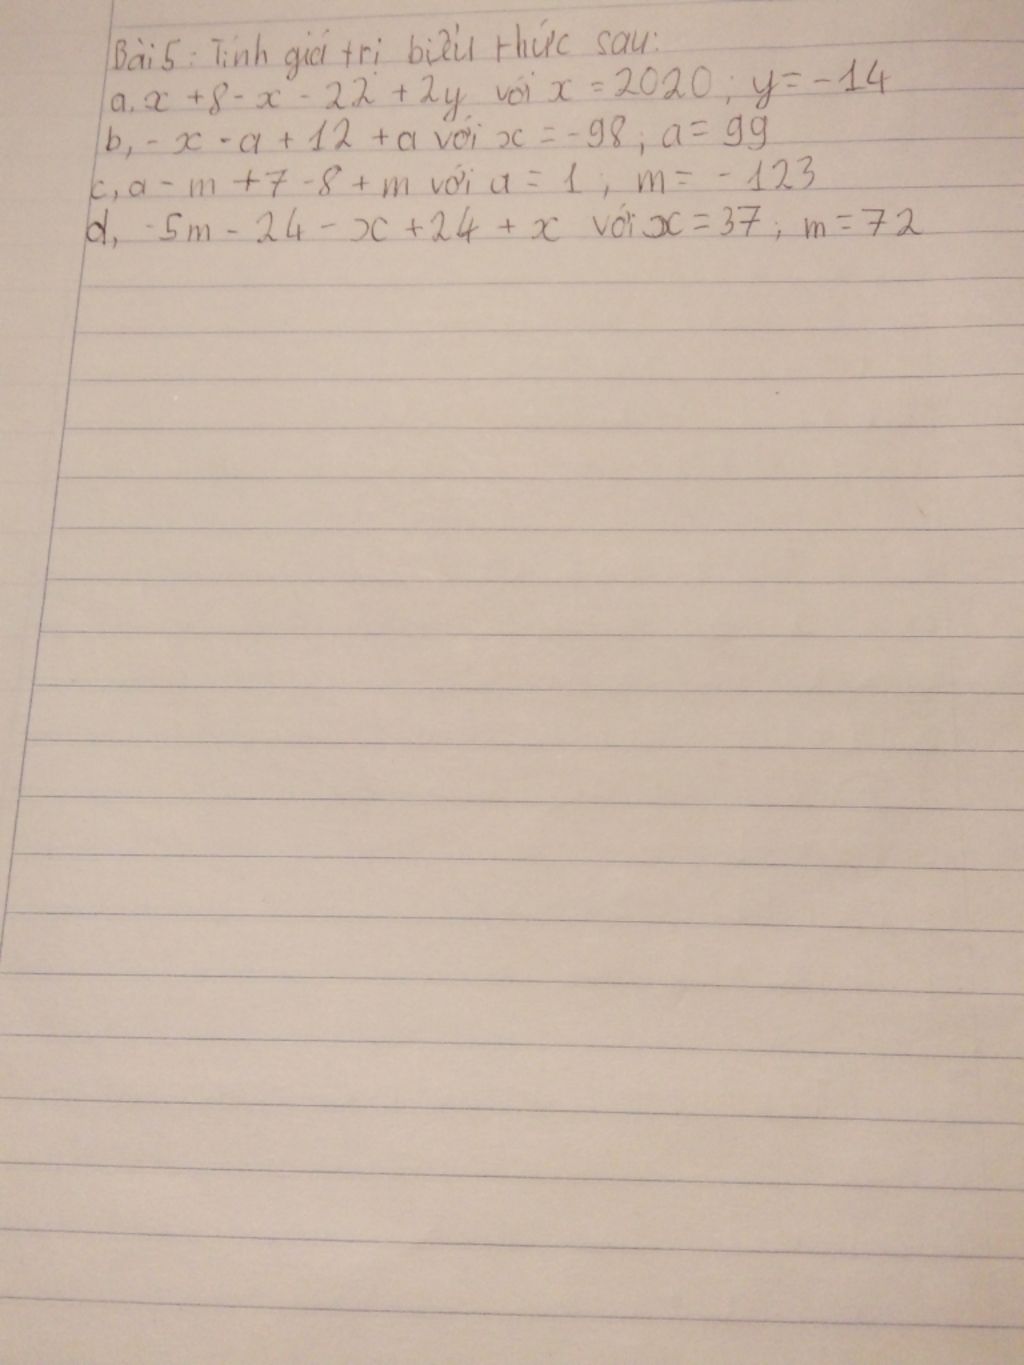 Bài 5: Tính giá trị biểu thức sau:
a, x + 8 - x - 22 + 2y với x = 2020; y = -14
b, - x - a + 12 + a với x = -98; a = 99
c, a - m + 7 - 8 + m với a = 1; m = - 123
d, -5m - 24 - x + 24 + x với x = 37; m = 72